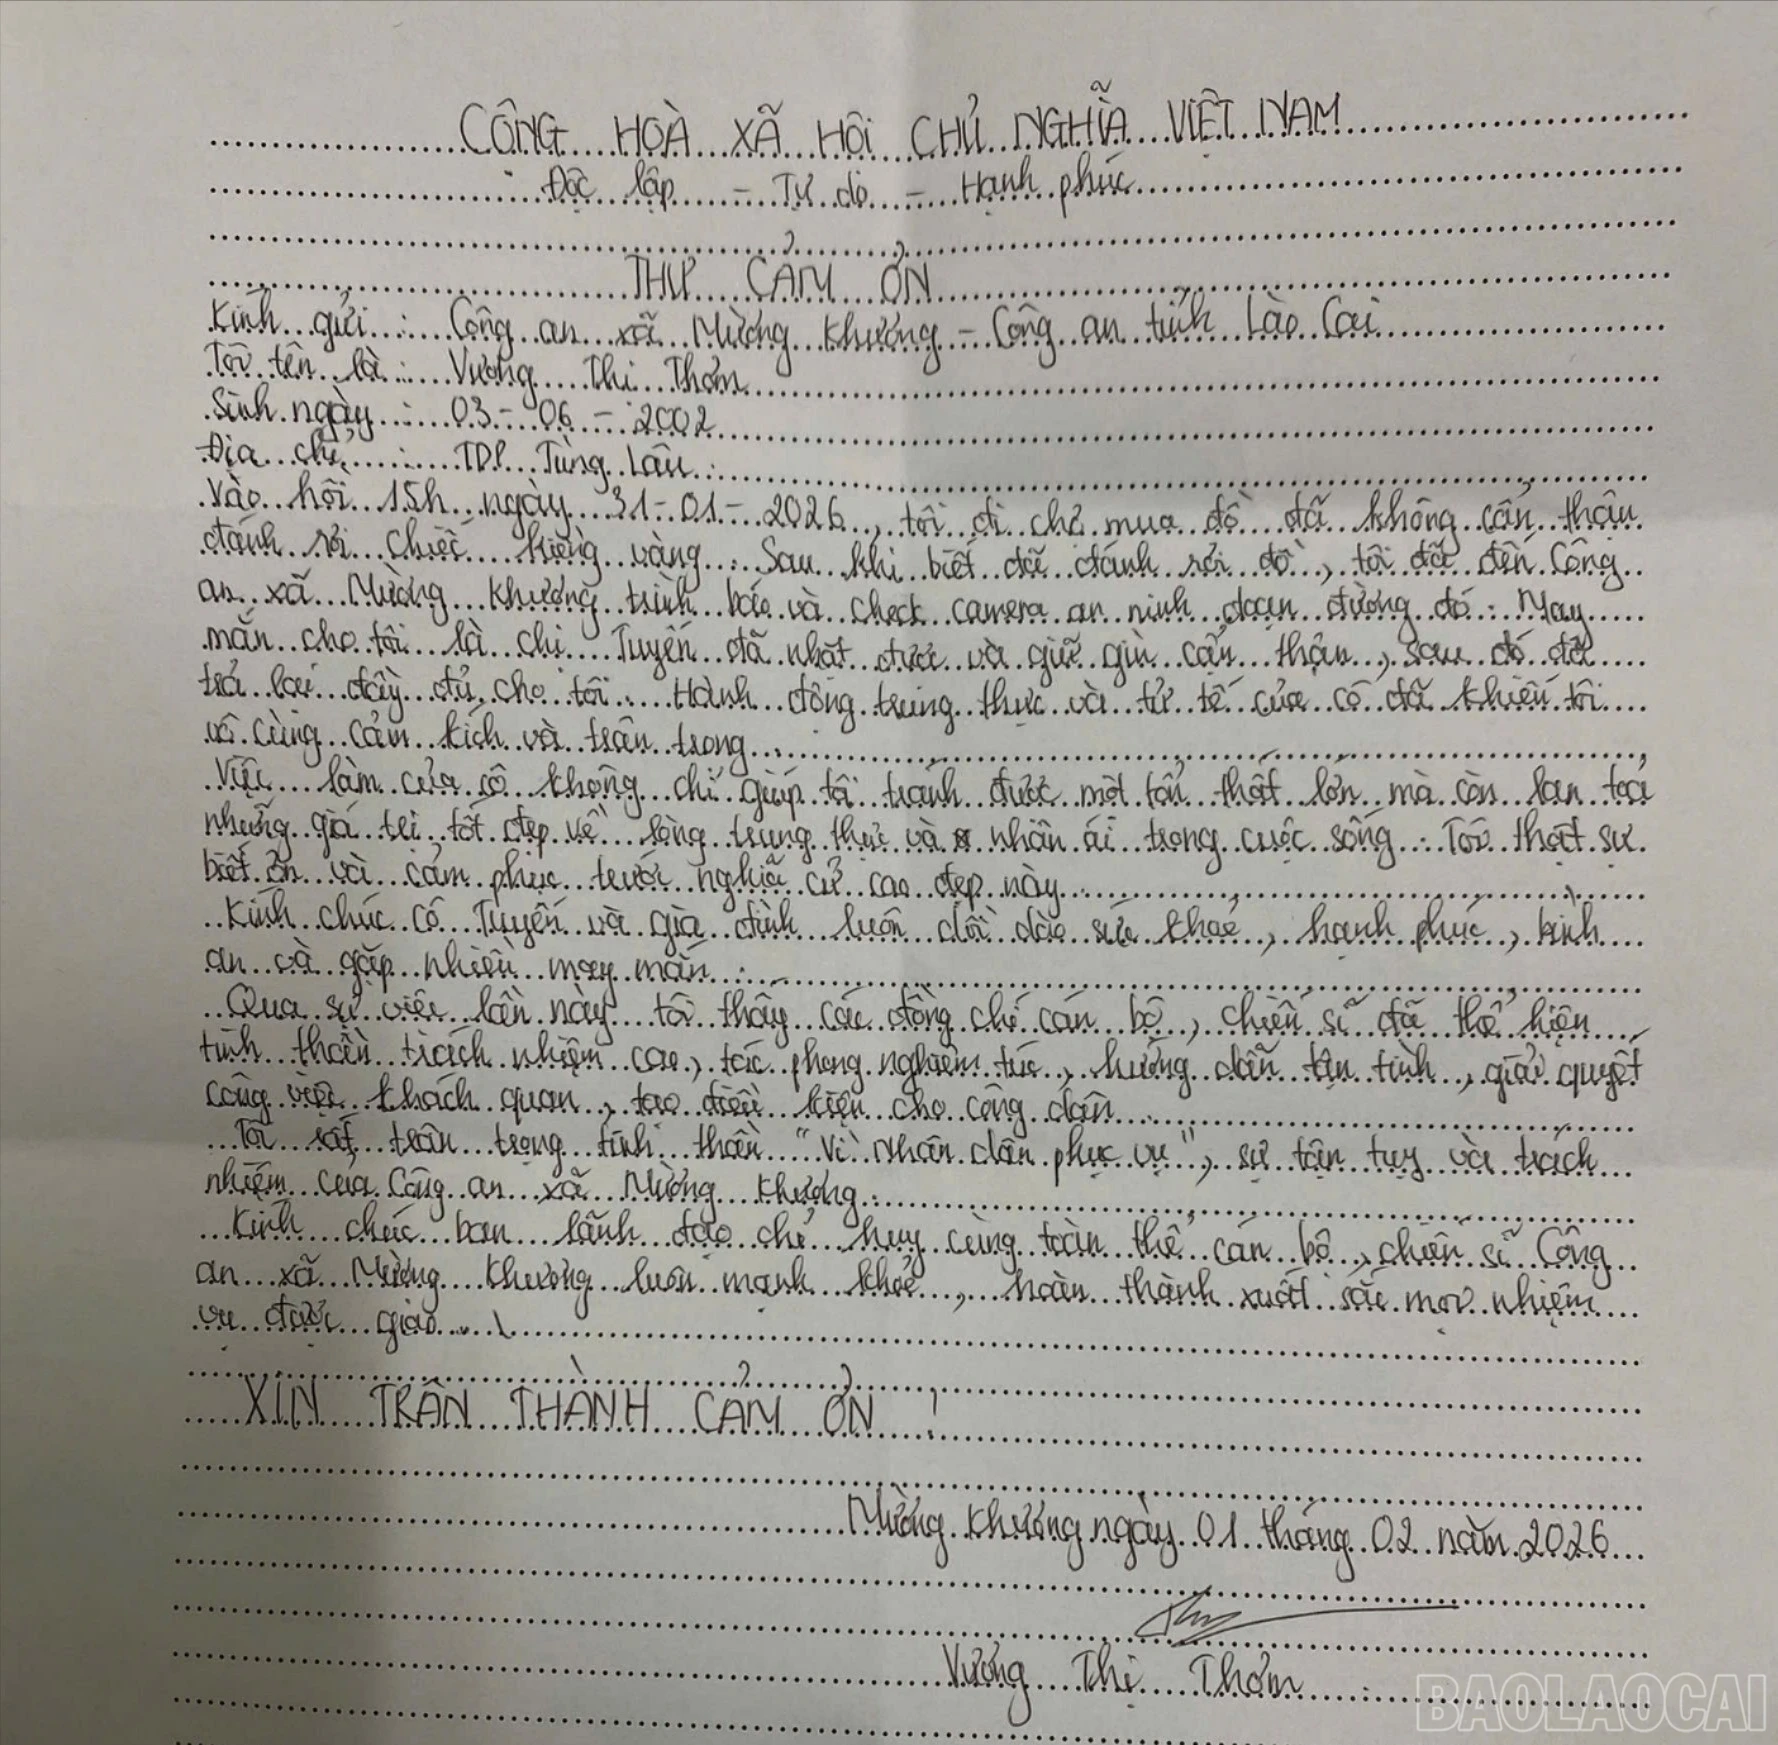 CÔNG HOÀ XÃ HỘI CHỦ NGHĨA VIỆT NAM
Độc lập - Tự do - Hạnh phúc
THƯ CẢM ƠN
Kính gửi : Công an xã Mường Khương - Công an tỉnh Lào Cai
Tôi tên là : Vương Thị Thơm
Sinh ngày : 03 - 06 - 2002
Địa chỉ : TDP Tùng Lâu
Vào hồi 15h ngày 31-01-2026, tôi đi chợ mua đồ đã không cẩn thận
đánh rơi chiếc kiềng vàng. Sau khi biết đã đánh rơi đồ, tôi đã đến Công
an xã Mường Khương trình báo và check camera an ninh đoạn đường đó. May
mắn cho tôi là chị Tuyến đã nhặt được và giữ gìn cẩn thận, sau đó đã
trả lại đầy đủ cho tôi. Hành động trung thực và tử tế của cô đã khiến tôi
vô cùng cảm kích và trân trọng.
Việc làm của cô không chỉ giúp tôi tránh được một tổn thất lớn mà còn lan toả
những giá trị tốt đẹp về lòng trung thực và nhân ái trong cuộc sống. Tôi thật sự
biết ơn và cảm phục trước nghĩa cử cao đẹp này.
Kính chúc cô Tuyến và gia đình luôn dồi dào sức khoẻ, hạnh phúc, bình
an và gặp nhiều may mắn.
Qua sự việc lần này tôi thấy các đồng chí cán bộ, chiến sĩ đã thể hiện
tinh thần trách nhiệm cao, tác phong nghiêm túc, hướng dẫn tận tình, giải quyết
công việc khách quan, tạo điều kiện cho công dân.
Tôi rất trân trọng tinh thần "Vì Nhân dân phục vụ", sự tận tụy và trách
nhiệm của Công an xã Mường Khương.
Kính chúc ban lãnh đạo chỉ huy cùng toàn thể cán bộ, chiến sĩ Công
an xã Mường Khương luôn mạnh khoẻ, hoàn thành xuất sắc mọi nhiệm
vụ được giao.
XIN TRÂN THÀNH CẢM ƠN !
Mường Khương ngày 01 tháng 02 năm 2026
Vương Thị Thơm
BAOLAOCAI